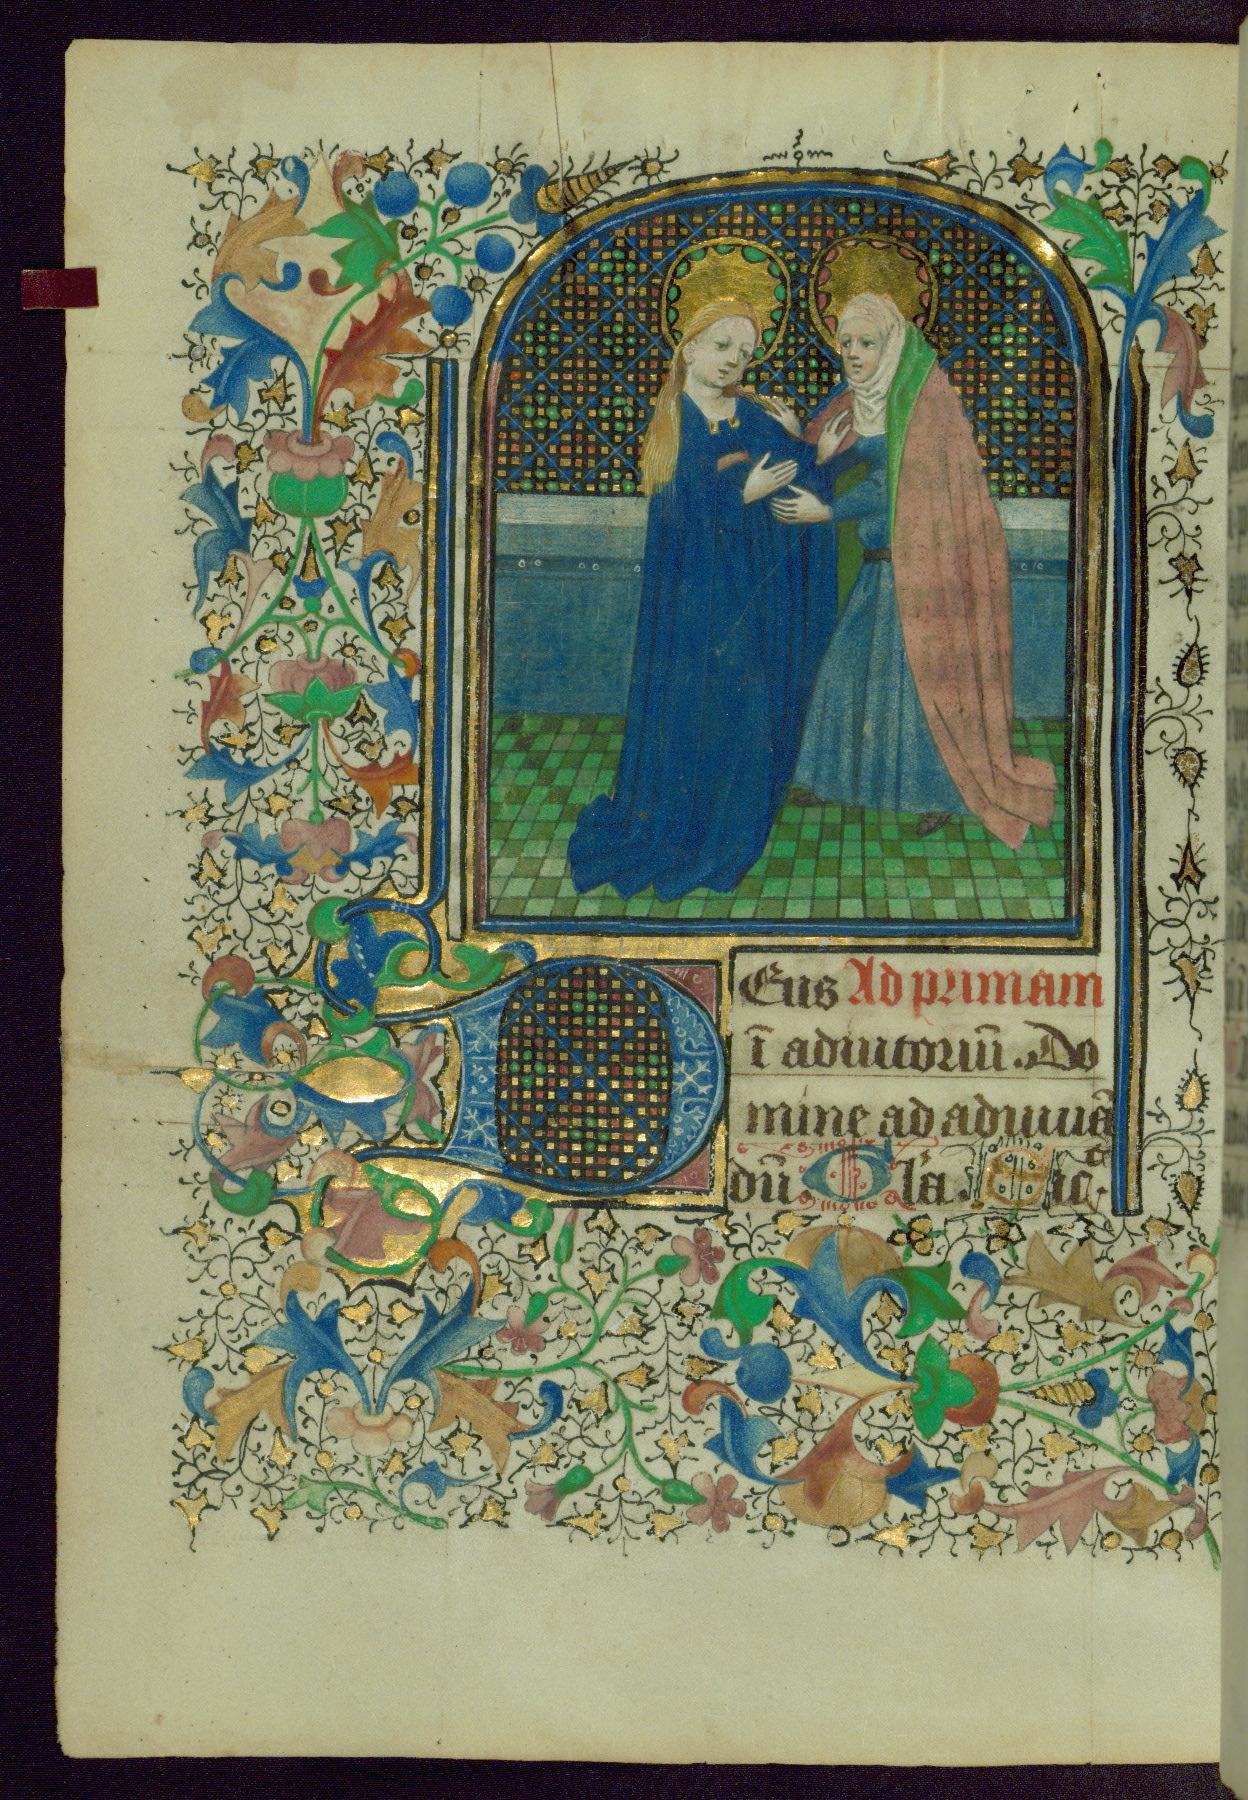 DEus Ad primam
ī adiutoriū. Do
mine ad adiuuā
dū. Gl̄a. Sic̄.